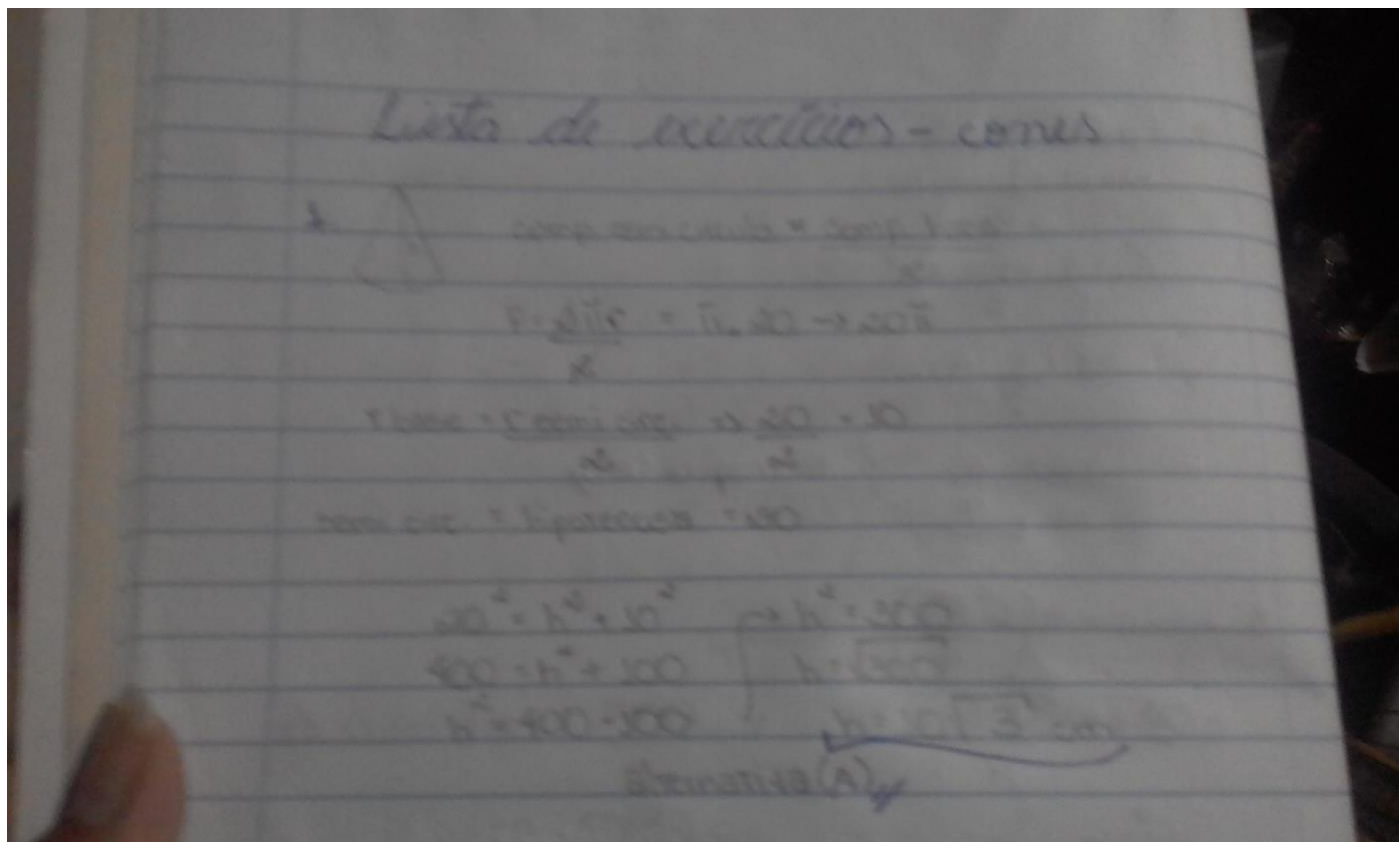 Lista de exercícios - cones
1. comp. semicírculo = comp.
2
P = 2πr = π . 20 → 20π
2
r base = r semi circ. → 20 = 10
2 2
semi circ. = hipotenusa = 20
20² = h² + 10² → h² = 300
400 = h² + 100 h = √300
h² = 400 - 100 h = 10√3 cm
alternativa (A)